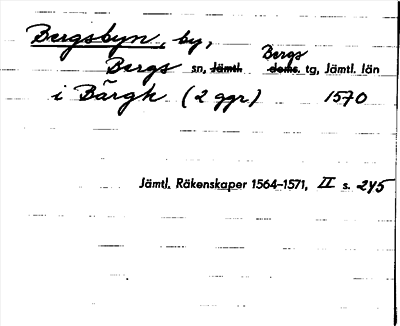 Bergsbyn, by,
Bergs sn, Jämtl. Bergs doms. tg, Jämtl. län
i Bärgh (2 ggr) 1570
Jämtl. Räkenskaper 1564–1571, II s. 245